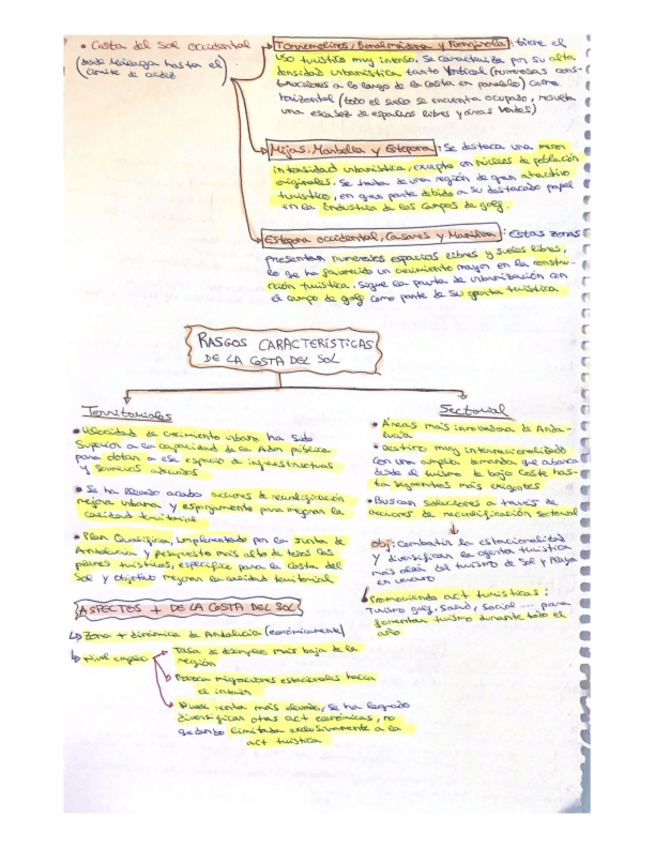 • Costa del Sol occidental
(desde Málaga hasta el
límite de Cádiz)
Torremolinos, Benalmádena y Fuengirola: tiene el
uso turístico muy intenso. Se caracteriza por su alta
densidad urbanística tanto vertical (numerosas cons-
trucciones a lo largo de la costa en paralelo) como
horizontal (todo el suelo se encuentra ocupado, resulta
una escasez de espacios libres y áreas verdes)
Mijas, Marbella y Estepona: Se destaca una menor
intensidad urbanística, excepto en núcleos de población
originales. Se trata de una región de gran atractivo
turístico, en gran parte debido a su destacado papel
en la industria de los campos de golf.
Estepona occidental, Casares y Manilva: Estas zonas
presentan numerosos espacios libres y suelos libres,
lo que ha favorecido un crecimiento mayor en la constru-
cción turística. Sigue la pauta de urbanización con
el campo de golf como parte de su oferta turística
RASGOS CARACTERÍSTICAS
DE LA COSTA DEL SOL
Territoriales
• Velocidad de crecimiento urbano ha sido
superior a la capacidad de la Adm pública
para dotar a ese espacio de infraestructuras
y servicios adecuados
• Se ha llevado acabo acciones de recualificación
mejora urbana y esponjamiento para mejorar la
calidad territorial
• Plan Qualifica, implementado por la Junta de
Andalucía y presupuesto más alto de todos los
planes turísticos, específico para la Costa del
Sol y objetivo mejorar la calidad territorial
Sectorial
• Áreas más innovadora de Anda-
lucía
• destino muy internacionalizado
con una amplia demanda que abarca
desde el turismo de bajo coste has-
ta segmentos más exigentes
• Buscan soluciones a través de
acciones de recualificación sectorial
obj: Combatir la estacionalidad
y diversificar la oferta turística
más allá del turismo de Sol y Playa
en verano
Promoviendo act turísticas:
Turismo golf, salud, social .... para
fomentar turismo durante todo el
año
ASPECTOS + DE LA COSTA DEL SOL
↳ Zona + dinámica de Andalucía (económicamente)
↳ nivel empleo
Tasa de desempleo más baja de la
región
Provoca migraciones estacionales hacia
el interior
renta más elevado, se ha logrado
diversificar otras act económicas, no
quedando limitada exclusivamente a la
act turística